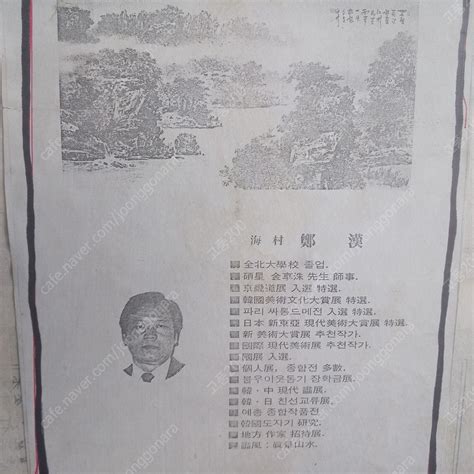 海村 鄭 漢
全北大學校 졸업.
碩星 金亨洙 先生 師事.
京畿道展 入選 特選.
韓國美術文化大賞展 特選.
파리 싸롱드메전 入選 特選.
日本 新東亞 現代美術大賞展 特選.
新 美術大賞展 추천작가.
國際 現代美術展 추천작가.
國展 入選.
個人展, 종합전 多數.
불우이웃돕기 장학금展.
韓·中 現代 展.
韓·日 친선교류展.
예총 종합작품전
韓國도자기 研究.
地方 作家 招待展.
畵風: 眞景山水.
cafe.naver.com/joonggonara